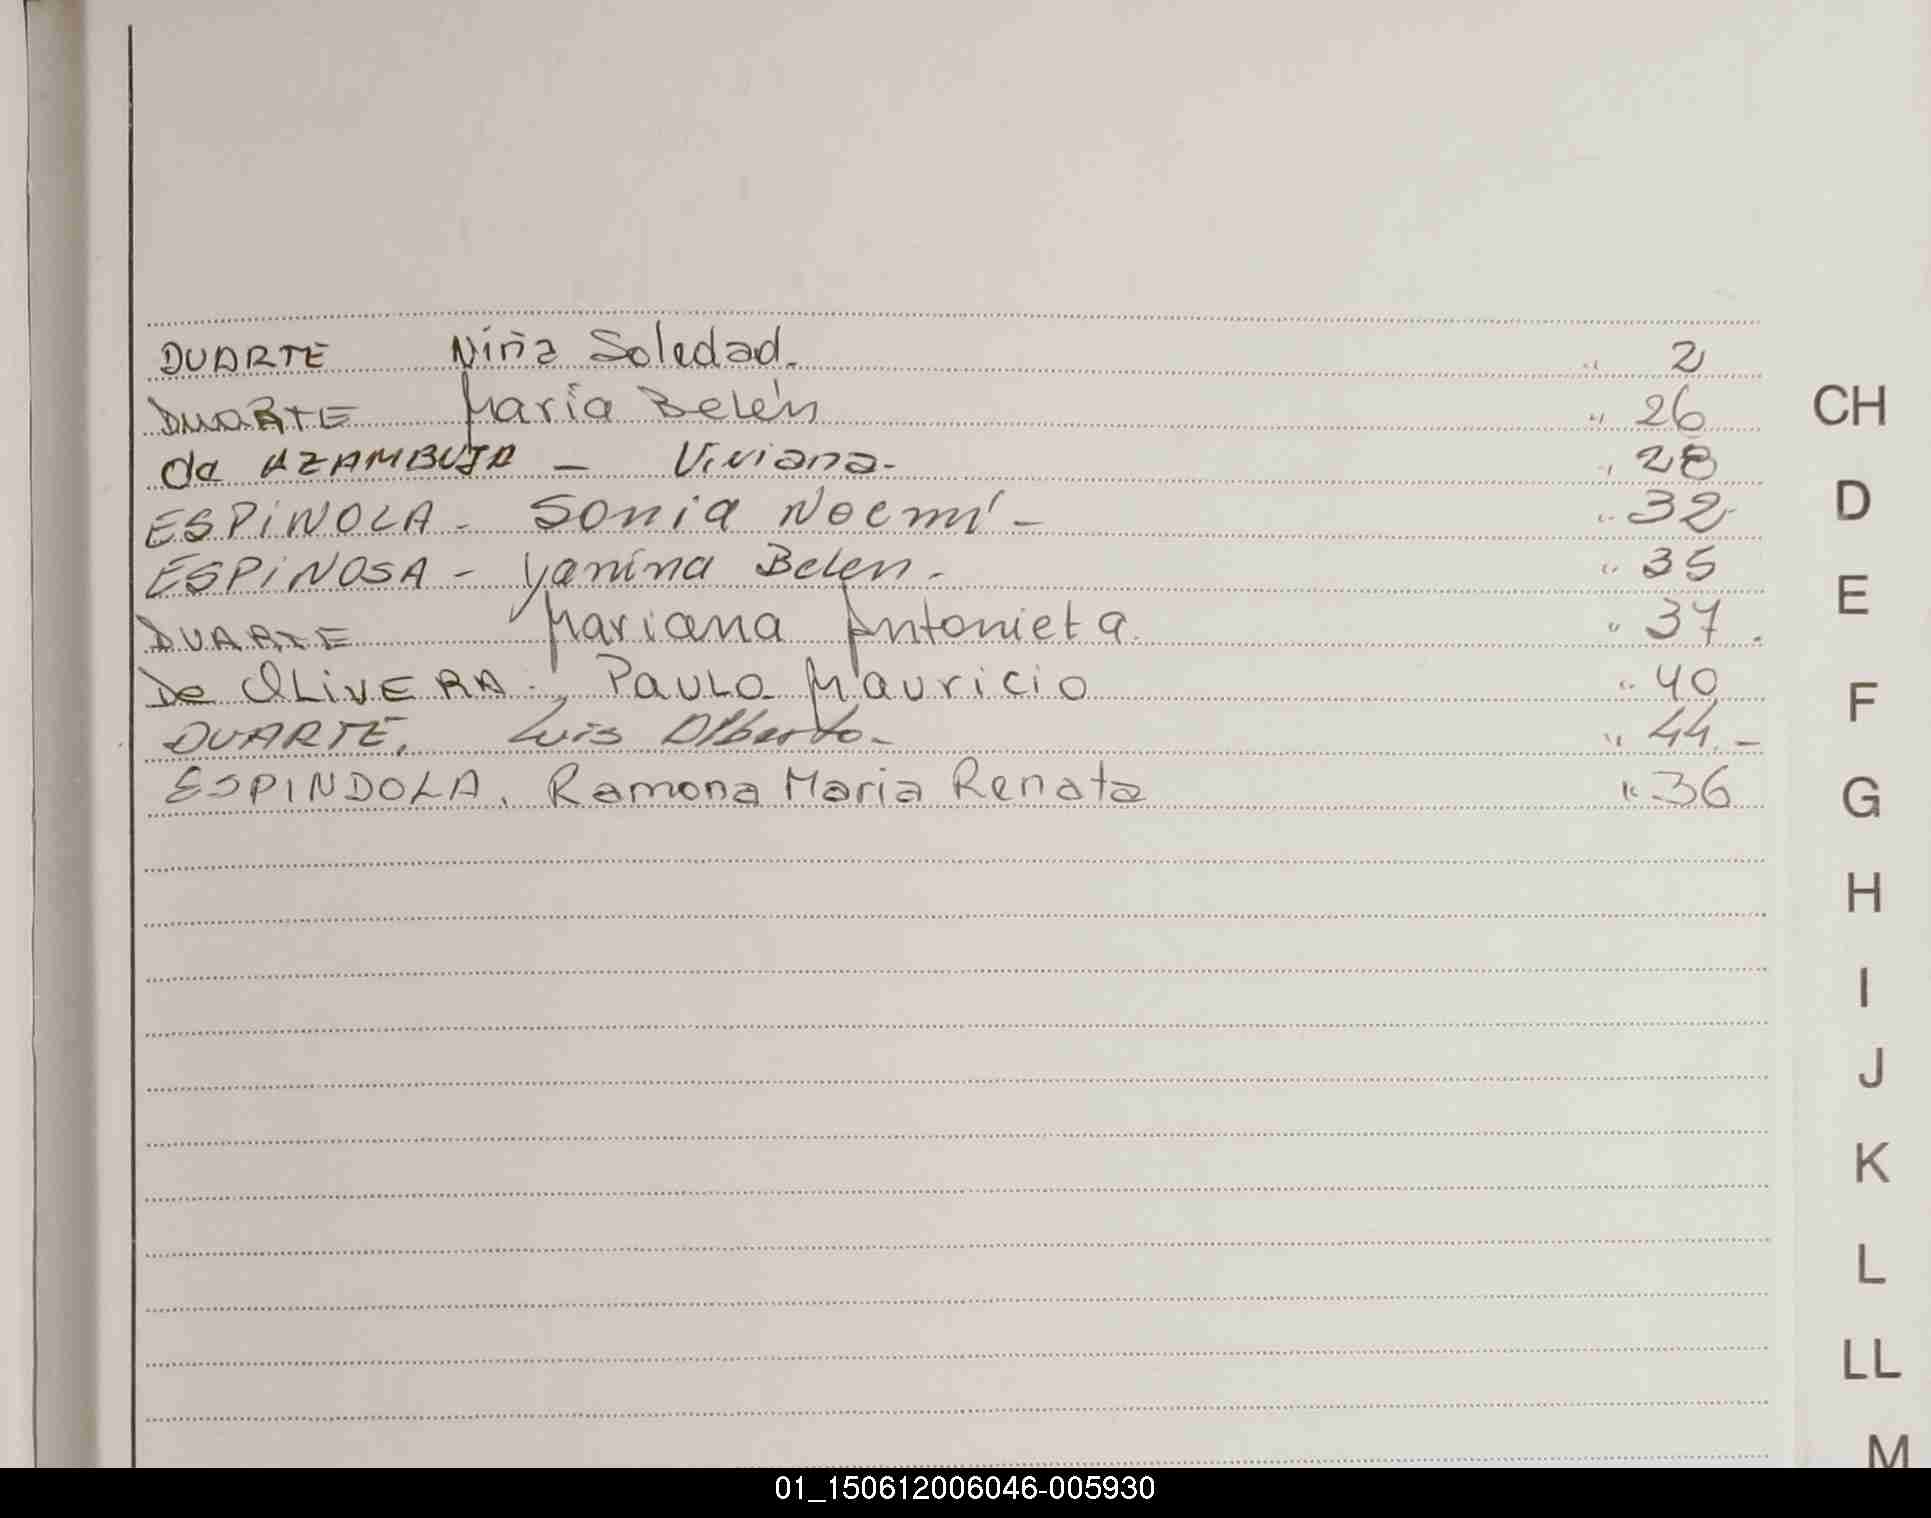 DUARTE Niña Soledad. " 2
DUARTE María Belén " 26
da AZAMBUJA - Viviana. " 28
ESPINOLA - Sonia Noemí - " 32
ESPINOSA - Yanina Belen. " 35
DUARTE Mariana Antonieta. " 37.
De OLIVERA. Paulo Mauricio " 40
DUARTE. Luis Alberto - " 44. -
ESPINDOLA. Ramona Maria Renata " 36
CH
D
E
F
G
H
I
J
K
L
LL
M
01_150612006046-005930